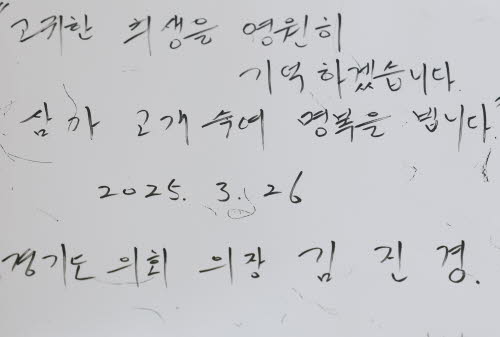 "고귀한 희생을 영원히
기억하겠습니다.
삼가 고개 숙여 명복을 빕니다"
2025. 3. 26
경기도 의회 의장 김 진 경.